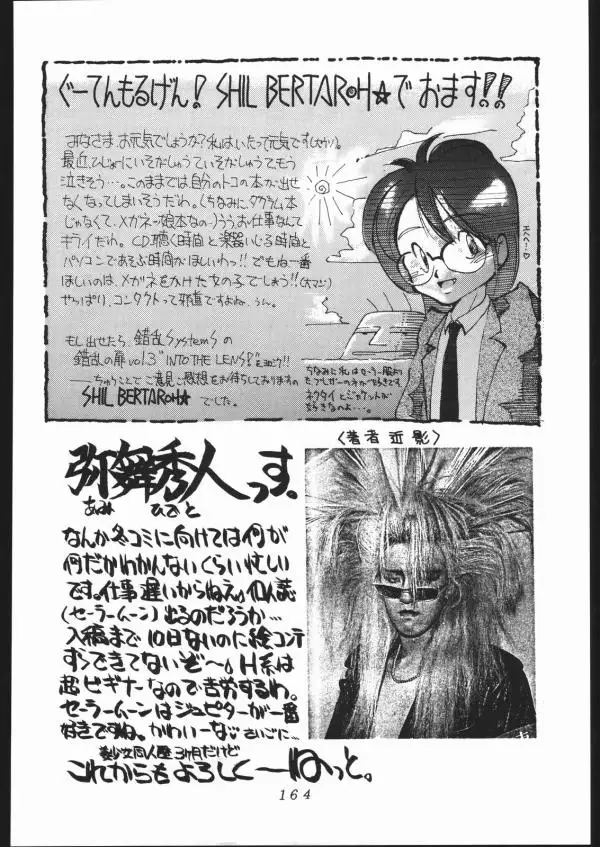 ぐーてんもるげん! SHIL BERTAROH☆でおます!!
みなさまお元気でしょうか?私はいたって元気です(大ウソ)。
最近ひじょーにいそがしゅうていそがしゅうてもう
泣きそう…。このままでは自分のトコの本が出せ
なくなってしまいそうだわ。(ちなみに、タクラム本
じゃなくて、メガネっ娘本なの。)うぅお仕事なんて
キライだわ。CD聴く時間と楽器いじる時間と
パソコンであそぶ時間がほしいわっ!!でもね一番
ほしいのは、メガネをかけた女の子でしょう!!(大マジ)
やっぱり、コンタクトって邪道ですよね、うん。
もし出せたら、錯乱SystemSの
錯乱の扉vol.3"INTO THE LENS"をヨロピク!!
——ちゅうことでご意見ご感想をお待ちしておりますの
SHIL BERTAROH☆でした。
エヘヘ…♡
ちなみに私はセーラー服より
もブレザーの方が好きです
ネクタイとジャケットが
好きなのよ…。
弥舞秀人っす。
あみ ひでと
なんか冬コミに向けては何が
何だかわかんないくらい忙しい
です。仕事遅いからねぇ。個人誌
(セーラームーン)出るのだろうか…
入稿まで10日ないのに絵コンテ
すらできてないぞ〜。H系は
超ビギナーなので苦労するわ。
セーラームーンはジュピターが一番
好きですね。かわいーな。さいごに…
美少女同人歴3ヶ月だけど
これからもよろしく〜ねっと。
〈著者近影〉
164